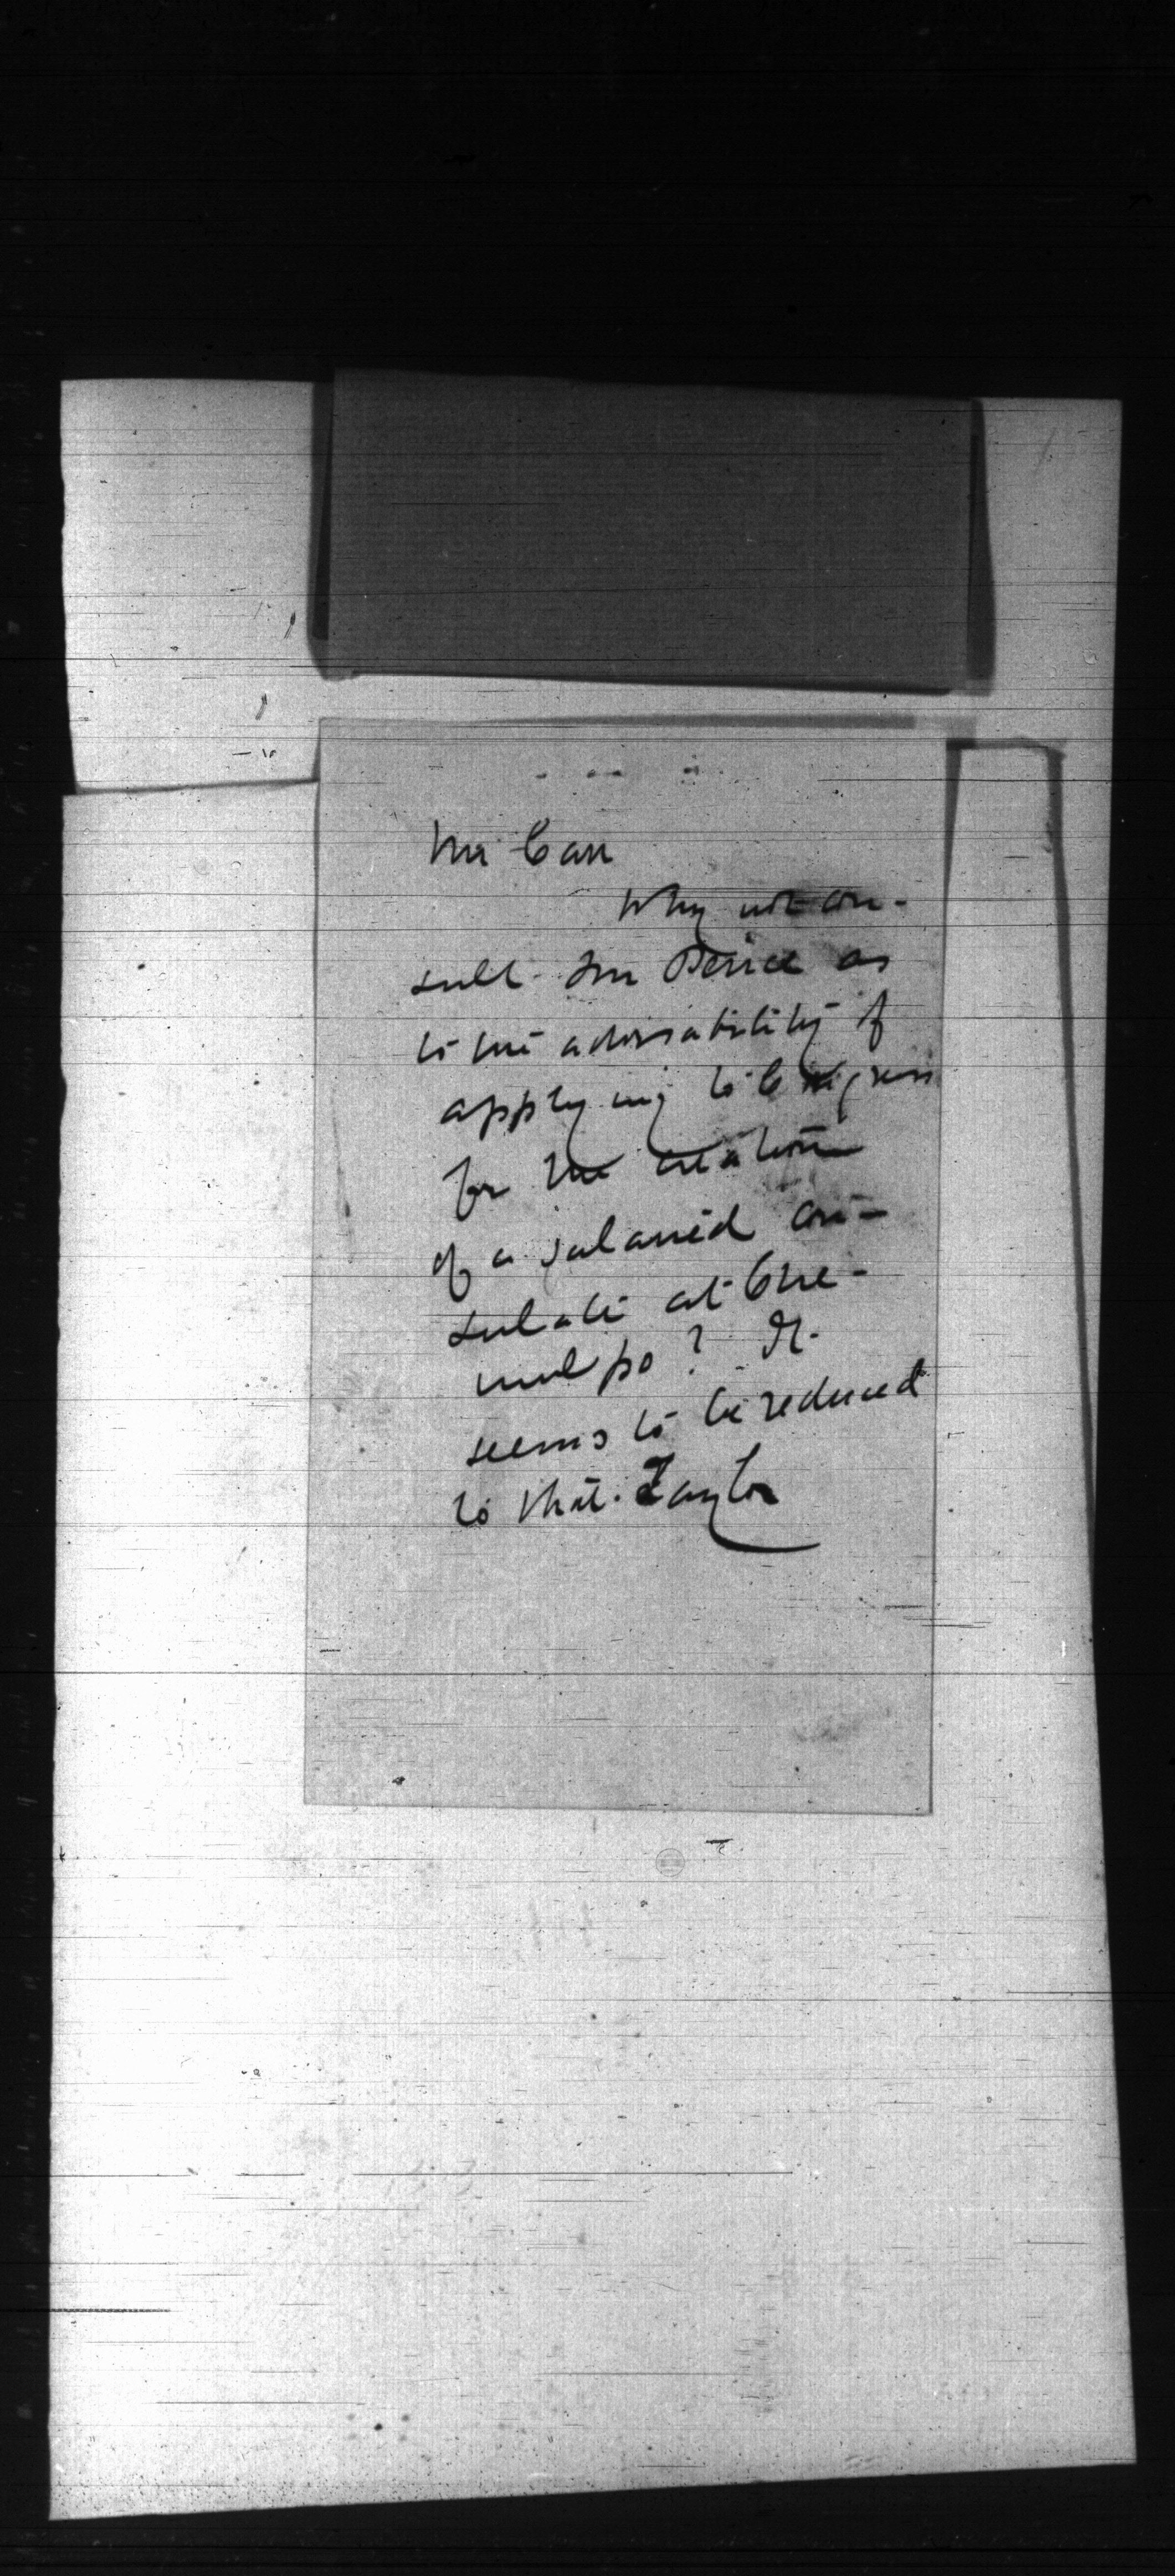 Mr Carr
Why not con-
sult Mr Peirce as
to the advisability of
applying to Congress
for the creation
of a salaried con-
sulate at Che-
mulpo? It
seems to be reduced
to that. Taylor